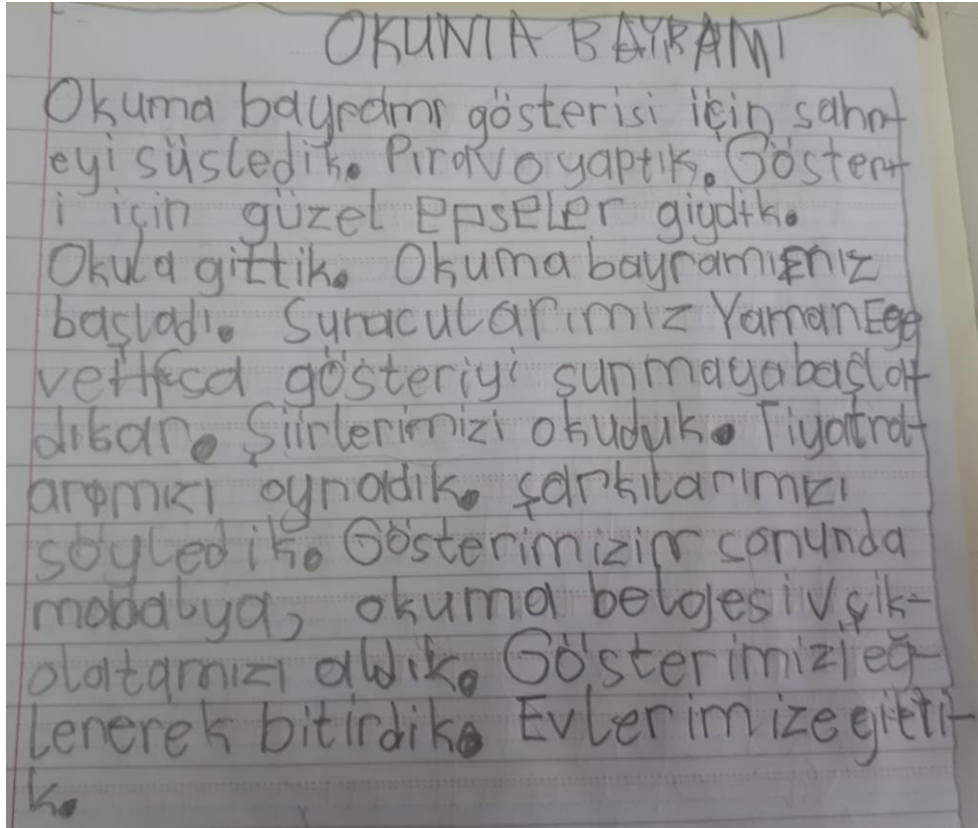 OKUMA BAYRAMI
Okuma bayramı gösterisi için sahn-
eyi süsledik. Pirovo yaptık. Göster-
i için güzel epseler giydik.
Okula gittik. Okuma bayramımız
başladı. Sunucularımız Yaman Ege
gösteriyi sunmaya başla-
Şiirlerimizi okuduk. Tiyatrol-
arımızı oynadık. Şarkılarımızı
söyledik. Gösterimizin sonunda
madalya, okuma belgesi v çik-
olatamızı aldık. Gösterimizi eğ-
lenerek bitirdik. Evlerimize gitti-
k.